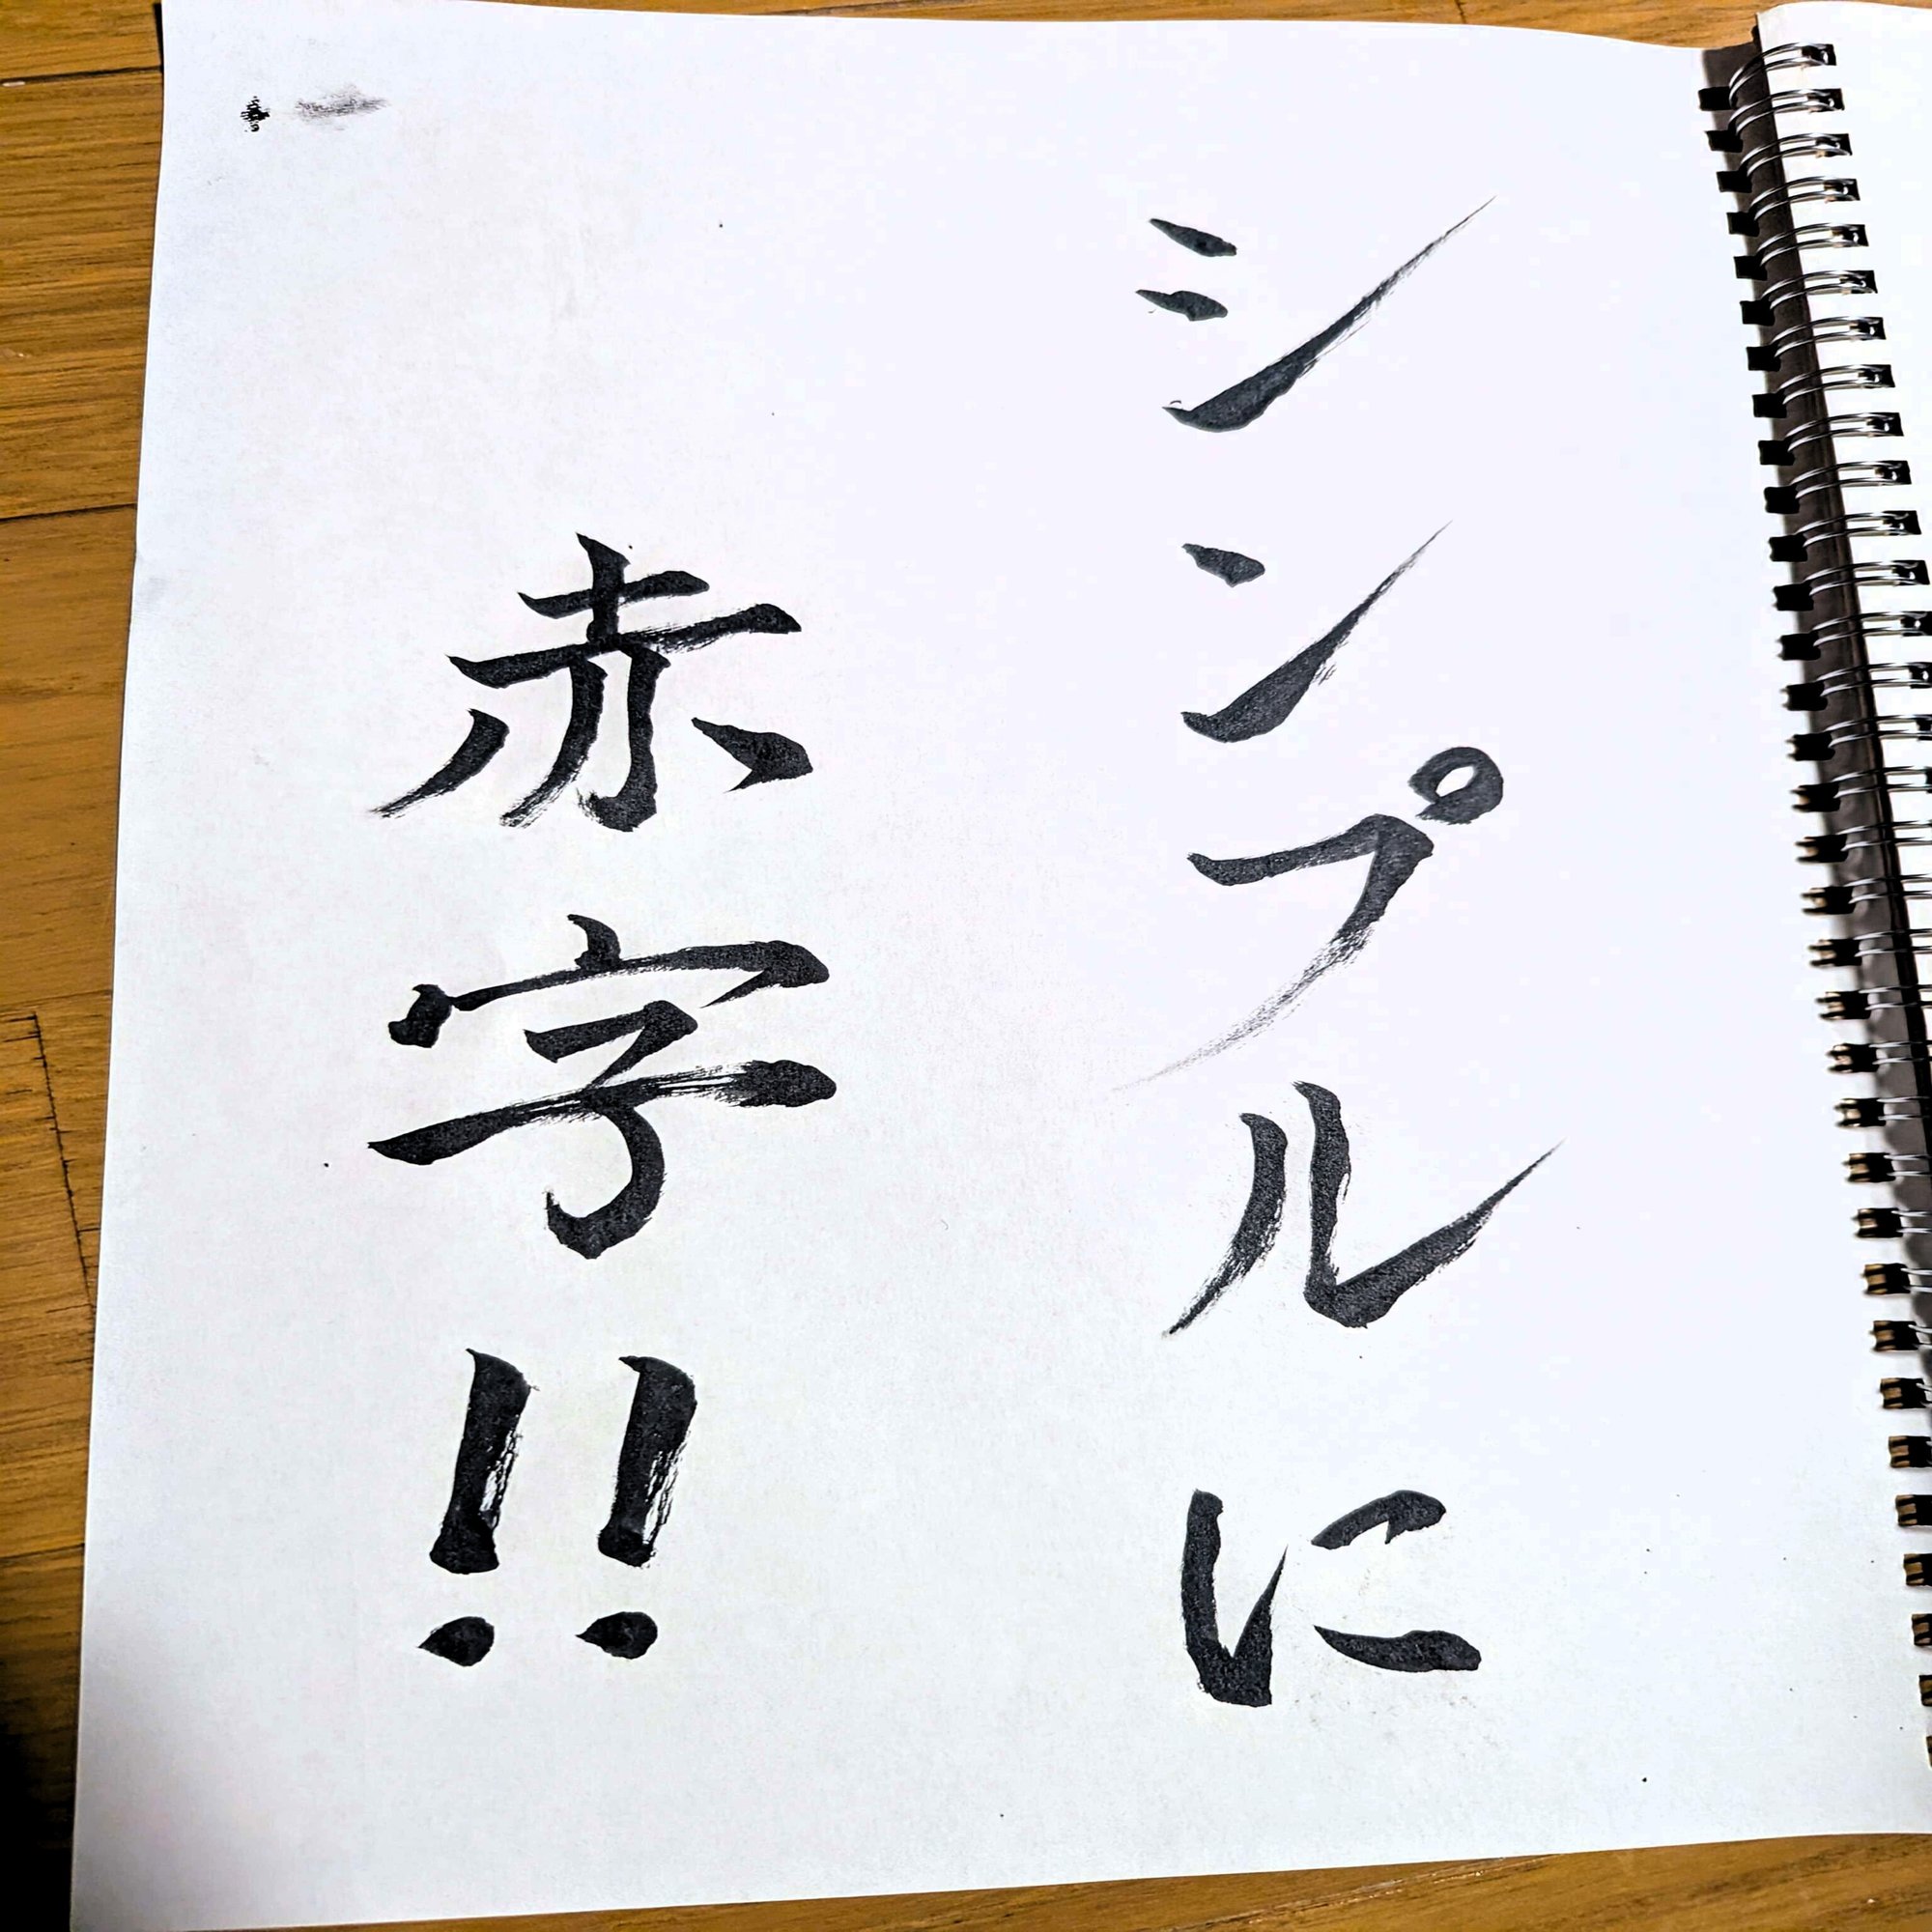 シンプルに
赤字!!